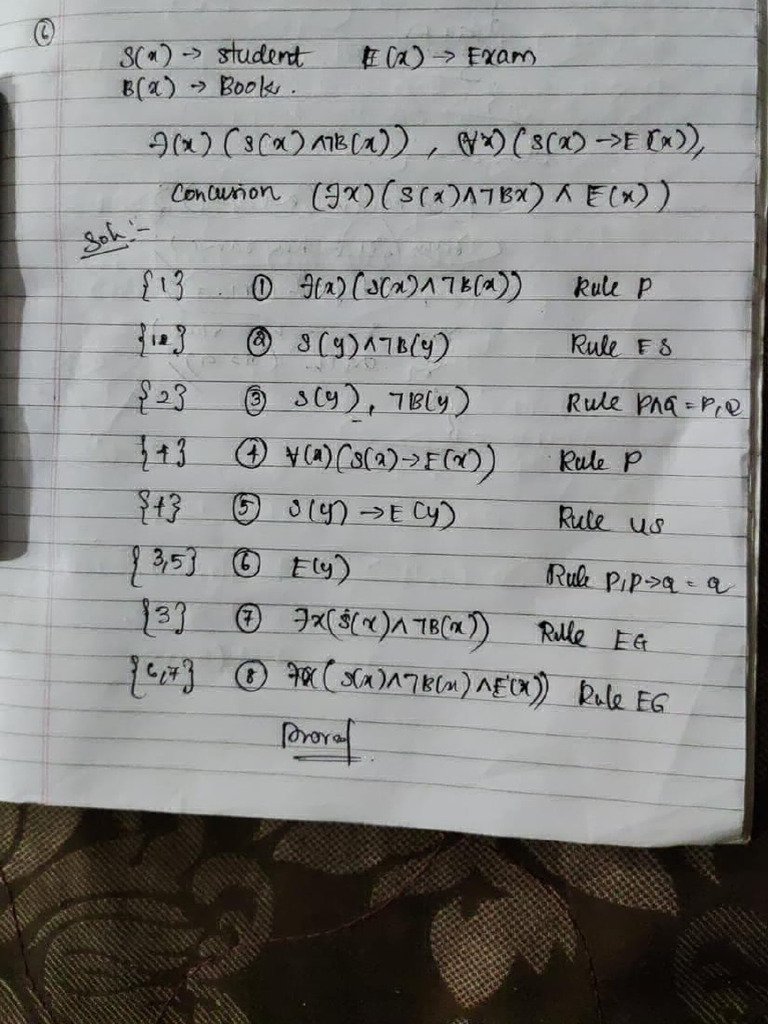 6
S(x) → student E(x) → Exam
B(x) → Book.
∃(x) (S(x) ∧ ¬B(x)), (∀x) (S(x) → E(x)),
Concusion (∃x) (S(x) ∧ ¬Bx) ∧ E(x))
Soln:-
{1} ① ∃(x) (S(x) ∧ ¬B(x)) Rule P
② S(y) ∧ ¬B(y) Rule ES
{2} ③ S(y), ¬B(y) Rule P∧Q = P, Q
{4} ④ ∀(x) (S(x) → E(x)) Rule P
{4} ⑤ S(y) → E(y) Rule US
{3,5} ⑥ E(y) Rule P, P→Q = Q
{3} ⑦ ∃x (S(x) ∧ ¬B(x)) Rule EG
{6,7} ⑧ ∃x (S(x) ∧ ¬B(x) ∧ E(x)) Rule EG
Proved